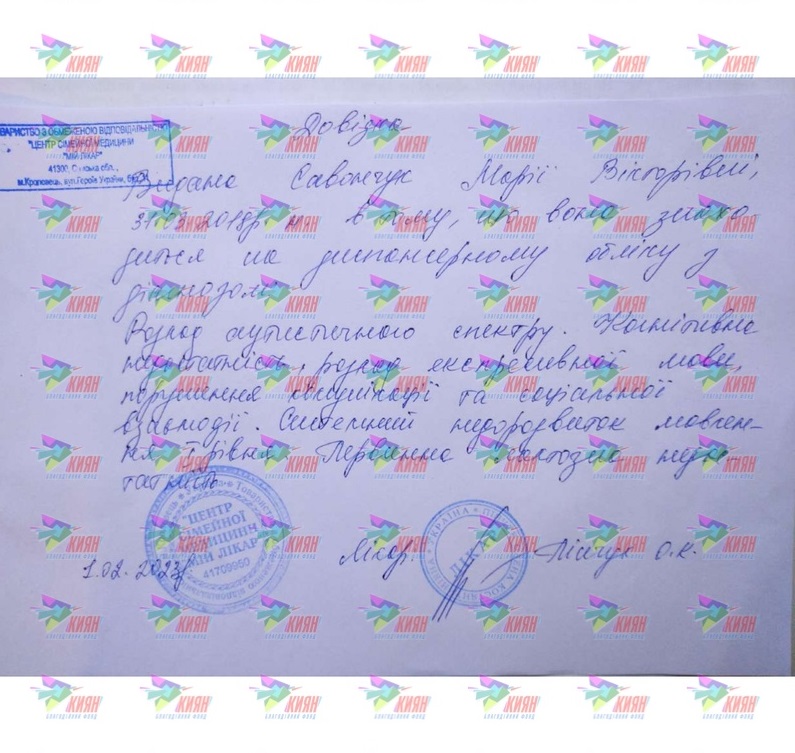 Довідка
ТОВАРИСТВО З ОБМЕЖЕНОЮ ВІДПОВІДАЛЬНІСТЮ
"ЦЕНТР СІМЕЙНОЇ МЕДИЦИНИ
"МІЙ ЛІКАР"
41300, Сумська обл.,
м.Кролевець, вул.Героїв України,
Видана Марії Вікторівні,
31.03.2018р.н в тому, що вона знахо
диться на диспансерному обліку з
діагнозом:
Розлад аутистичного спектру. Когнітивна
розлад експресивної мови,
порушення комунікації та соціальної
взаємодії. Системний недорозвиток мовлен-
ня І рівня. Первинна лактозна недос
татність
"ЦЕНТР
СІМЕЙНОЇ
МЕДИЦИНИ
МІЙ ЛІКАР"
41709950
1.02.2023р.
Лікар:
УКРАЇНА
ЛІКАР
О.К.
КИЯН
БЛАГОДІЙНИЙ ФОНД